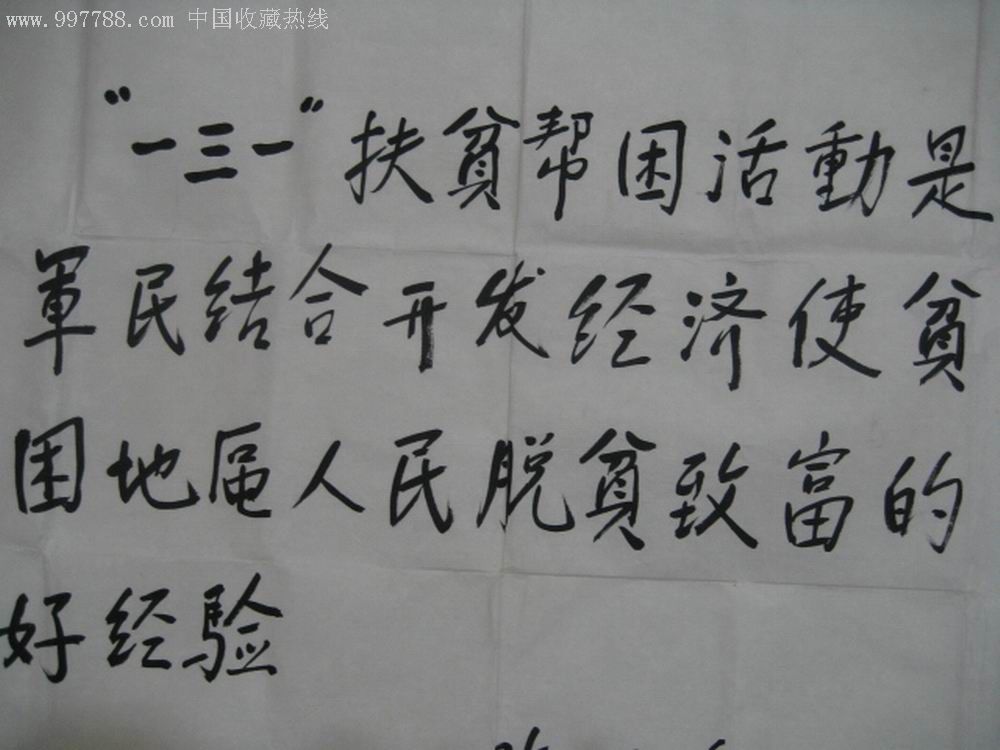 www.997788.com 中国收藏热线
"一三一"扶貧帮困活動是
軍民结合开发经济使貧
困地區人民脱貧致富的
好经验